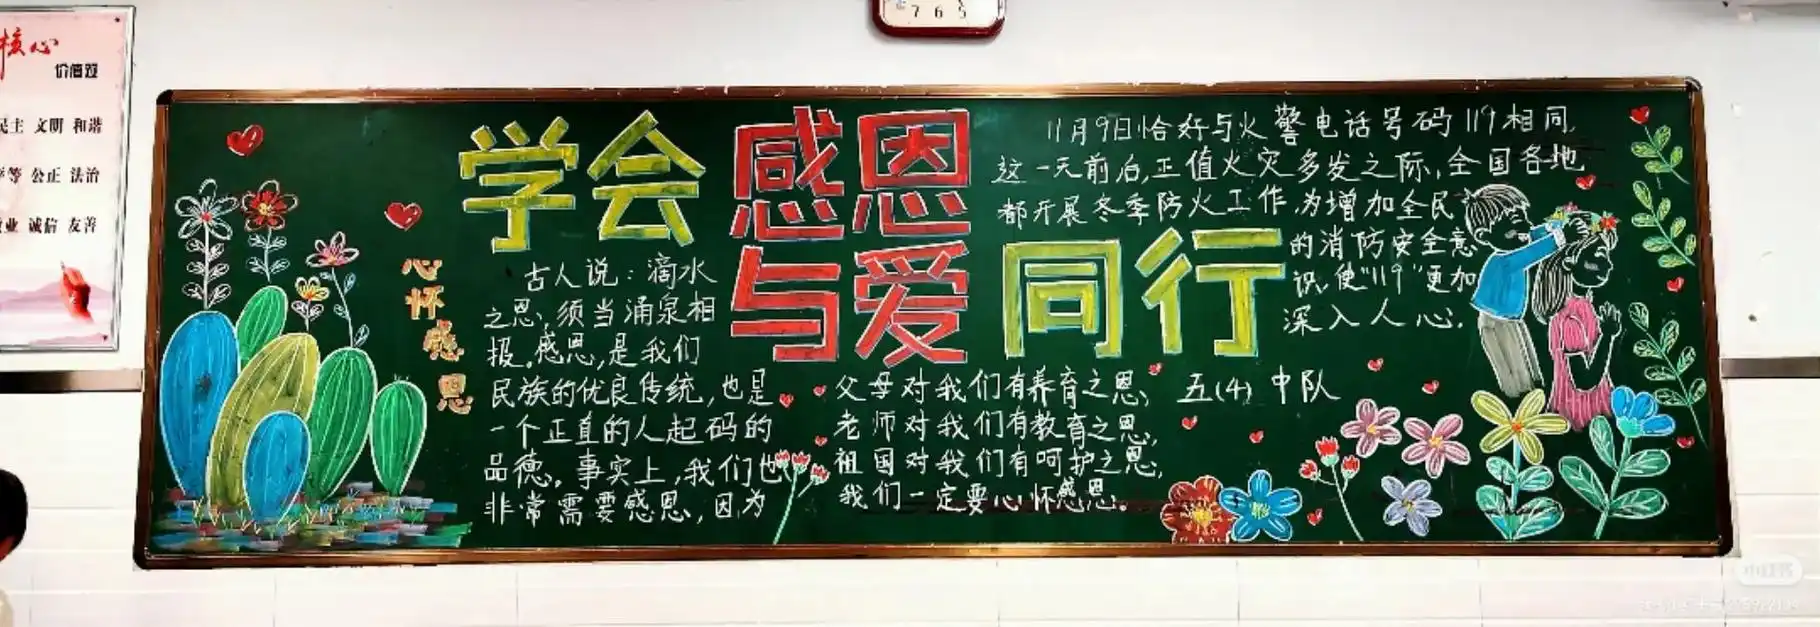 核心
价值观
民主 文明 和谐
平等 公正 法治
敬业 诚信 友善
7 6 5
学会
感恩
与爱
同行
心怀感恩
古人说：滴水
之恩，须当涌泉相
报。感恩，是我们
民族的优良传统，也是
一个正直的人起码的
品德。事实上，我们也
非常需要感恩，因为
父母对我们有养育之恩，
老师对我们有教育之恩，
祖国对我们有呵护之恩，
我们一定要心怀感恩。
11月9日恰好与火警电话号码119相同，
这一天前后，正值火灾多发之际，全国各地
都开展冬季防火工作，为增加全民
的消防安全意
识，使"119"更加
深入人心．
五(4) 中队
小红书